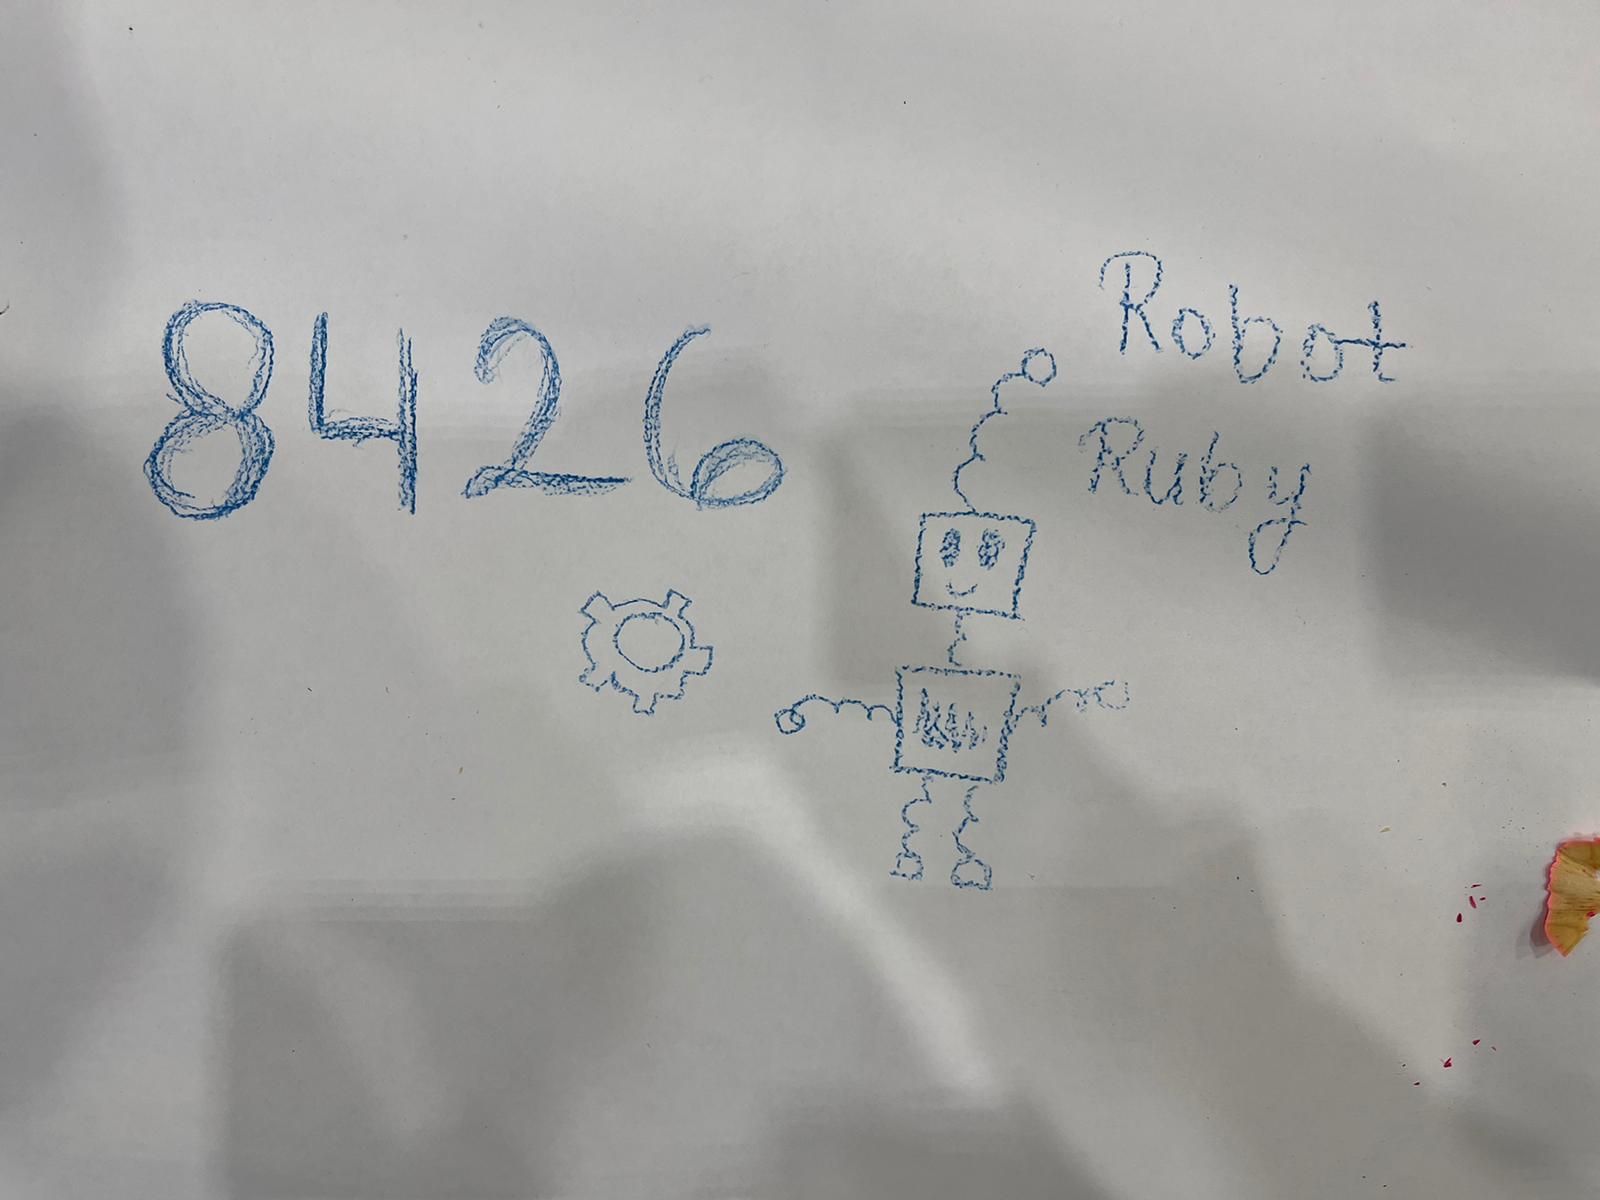 8426
Robot
Ruby